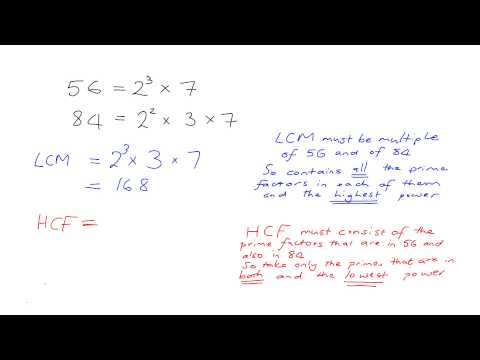 56 = 2³ × 7
84 = 2² × 3 × 7
LCM = 2³ × 3 × 7
= 168
LCM must be multiple
of 56 and of 84
So contains all the prime
factors in each of them
and the highest power
HCF =
HCF must consist of the
prime factors that are in 56 and
also in 84
So take only the primes that are in
both and the lowest power